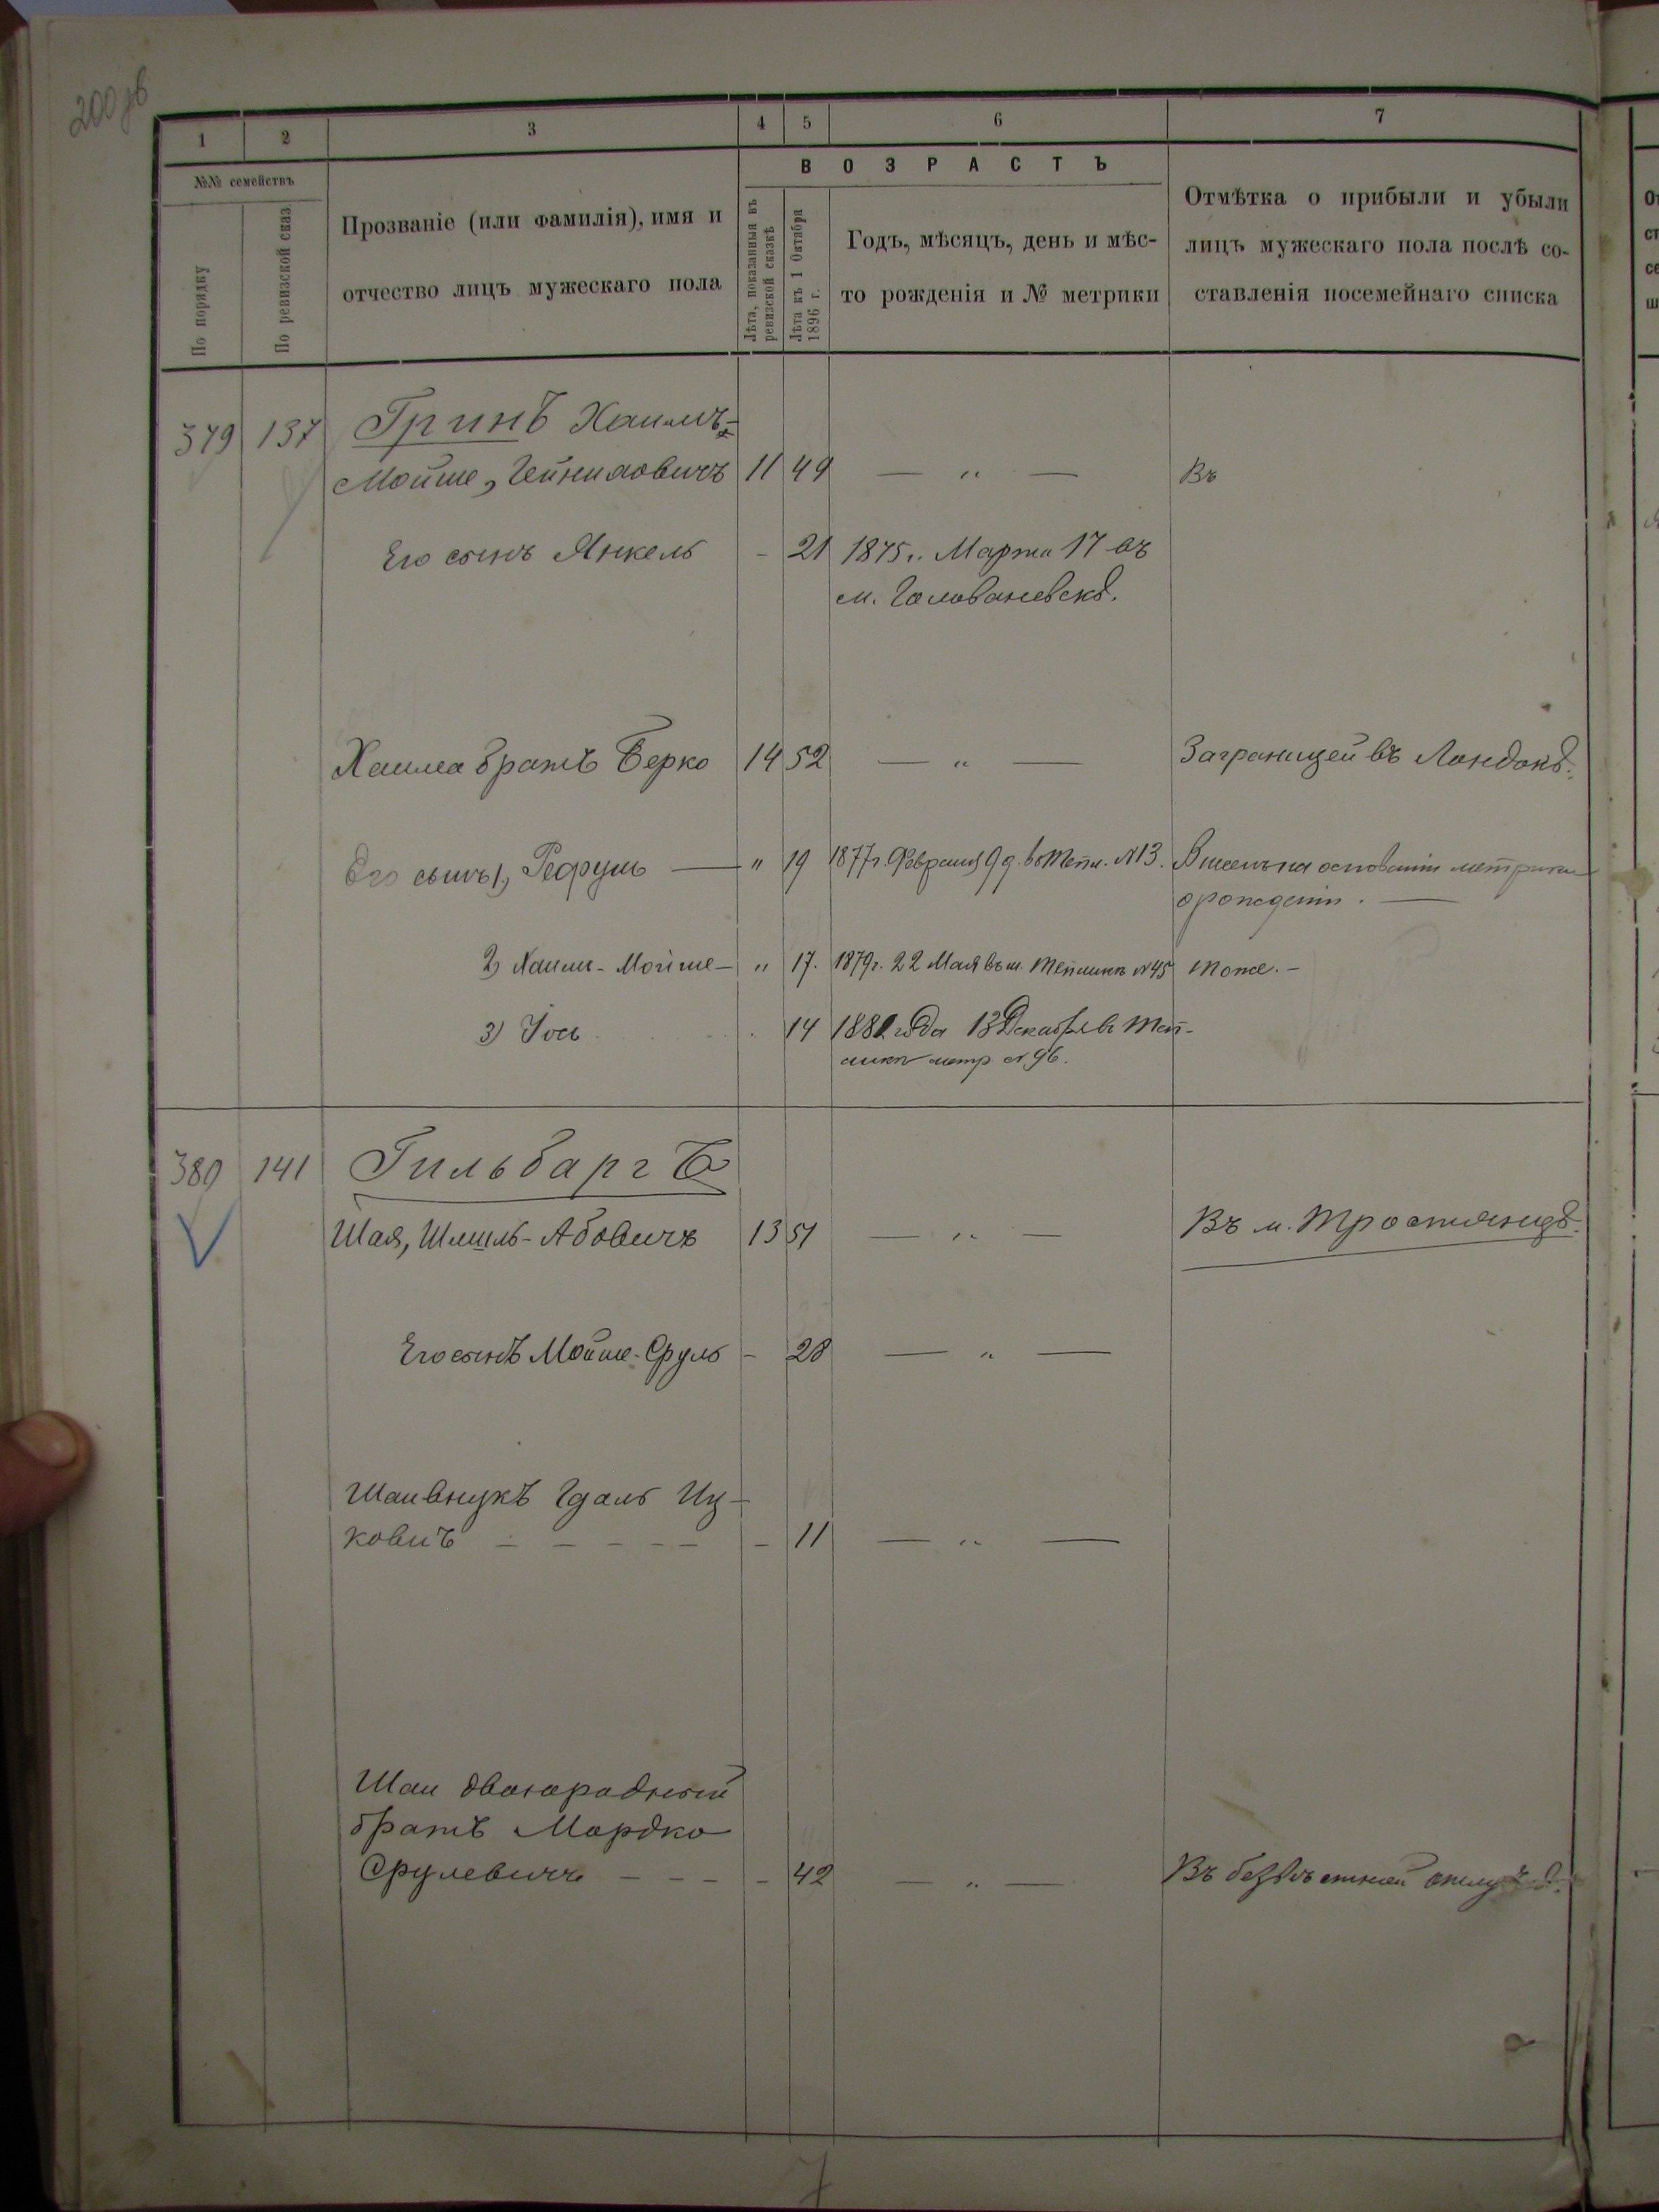 200 об
1 2 3 4 5 6 7
№№ семействъ
По порядку
По ревизской сказ.
Прозваніе (или фамилія), имя и
отчество лицъ мужескаго пола
ВОЗРАСТЪ
Лѣта, показанныя въ
ревизской сказкѣ
Лѣта къ 1 Октября
1896 г.
Годъ, мѣсяцъ, день и мѣс-
то рожденія и № метрики
Отмѣтка о прибыли и убыли
лицъ мужескаго пола послѣ со-
ставленія посемейнаго списка
379 137 Гринъ Хаимъ-
Мойше, 11 49 — „ — Въ
Его сынъ Янкель - 21 1875 г. Марта 17 въ
м. Голованевскѣ.
Хаима братъ Берко 14 52 — „ — Заграницей въ Лондонѣ.
Его сынъ 1) — „ 19 1877 г. Февраля 9 д. в Тепл. №13. на основаніи метрики
о рожденіи. —
2) Хаимъ-Мойше — „ 17. 1879 г. 22 Мая въ м. Тепликѣ №45 тоже. —
3) Іось 14 года 13 Декабря в Теп-
ликѣ метр №96.
380 141 Гильбаргъ
Шая, Шмиль-Абовичъ 13 51 — „ — Въ м. Тростянцѣ.
Его сынъ Мойше-Сруль - 28 — „ —
Шаи внукъ Гдаль Иц-
ковичъ - - - - - - 11 — „ —
Шаи двоюродный
братъ Мордко
Срулевичъ - - - - 42 — „ — Въ безвѣстной отлучкѣ.
7